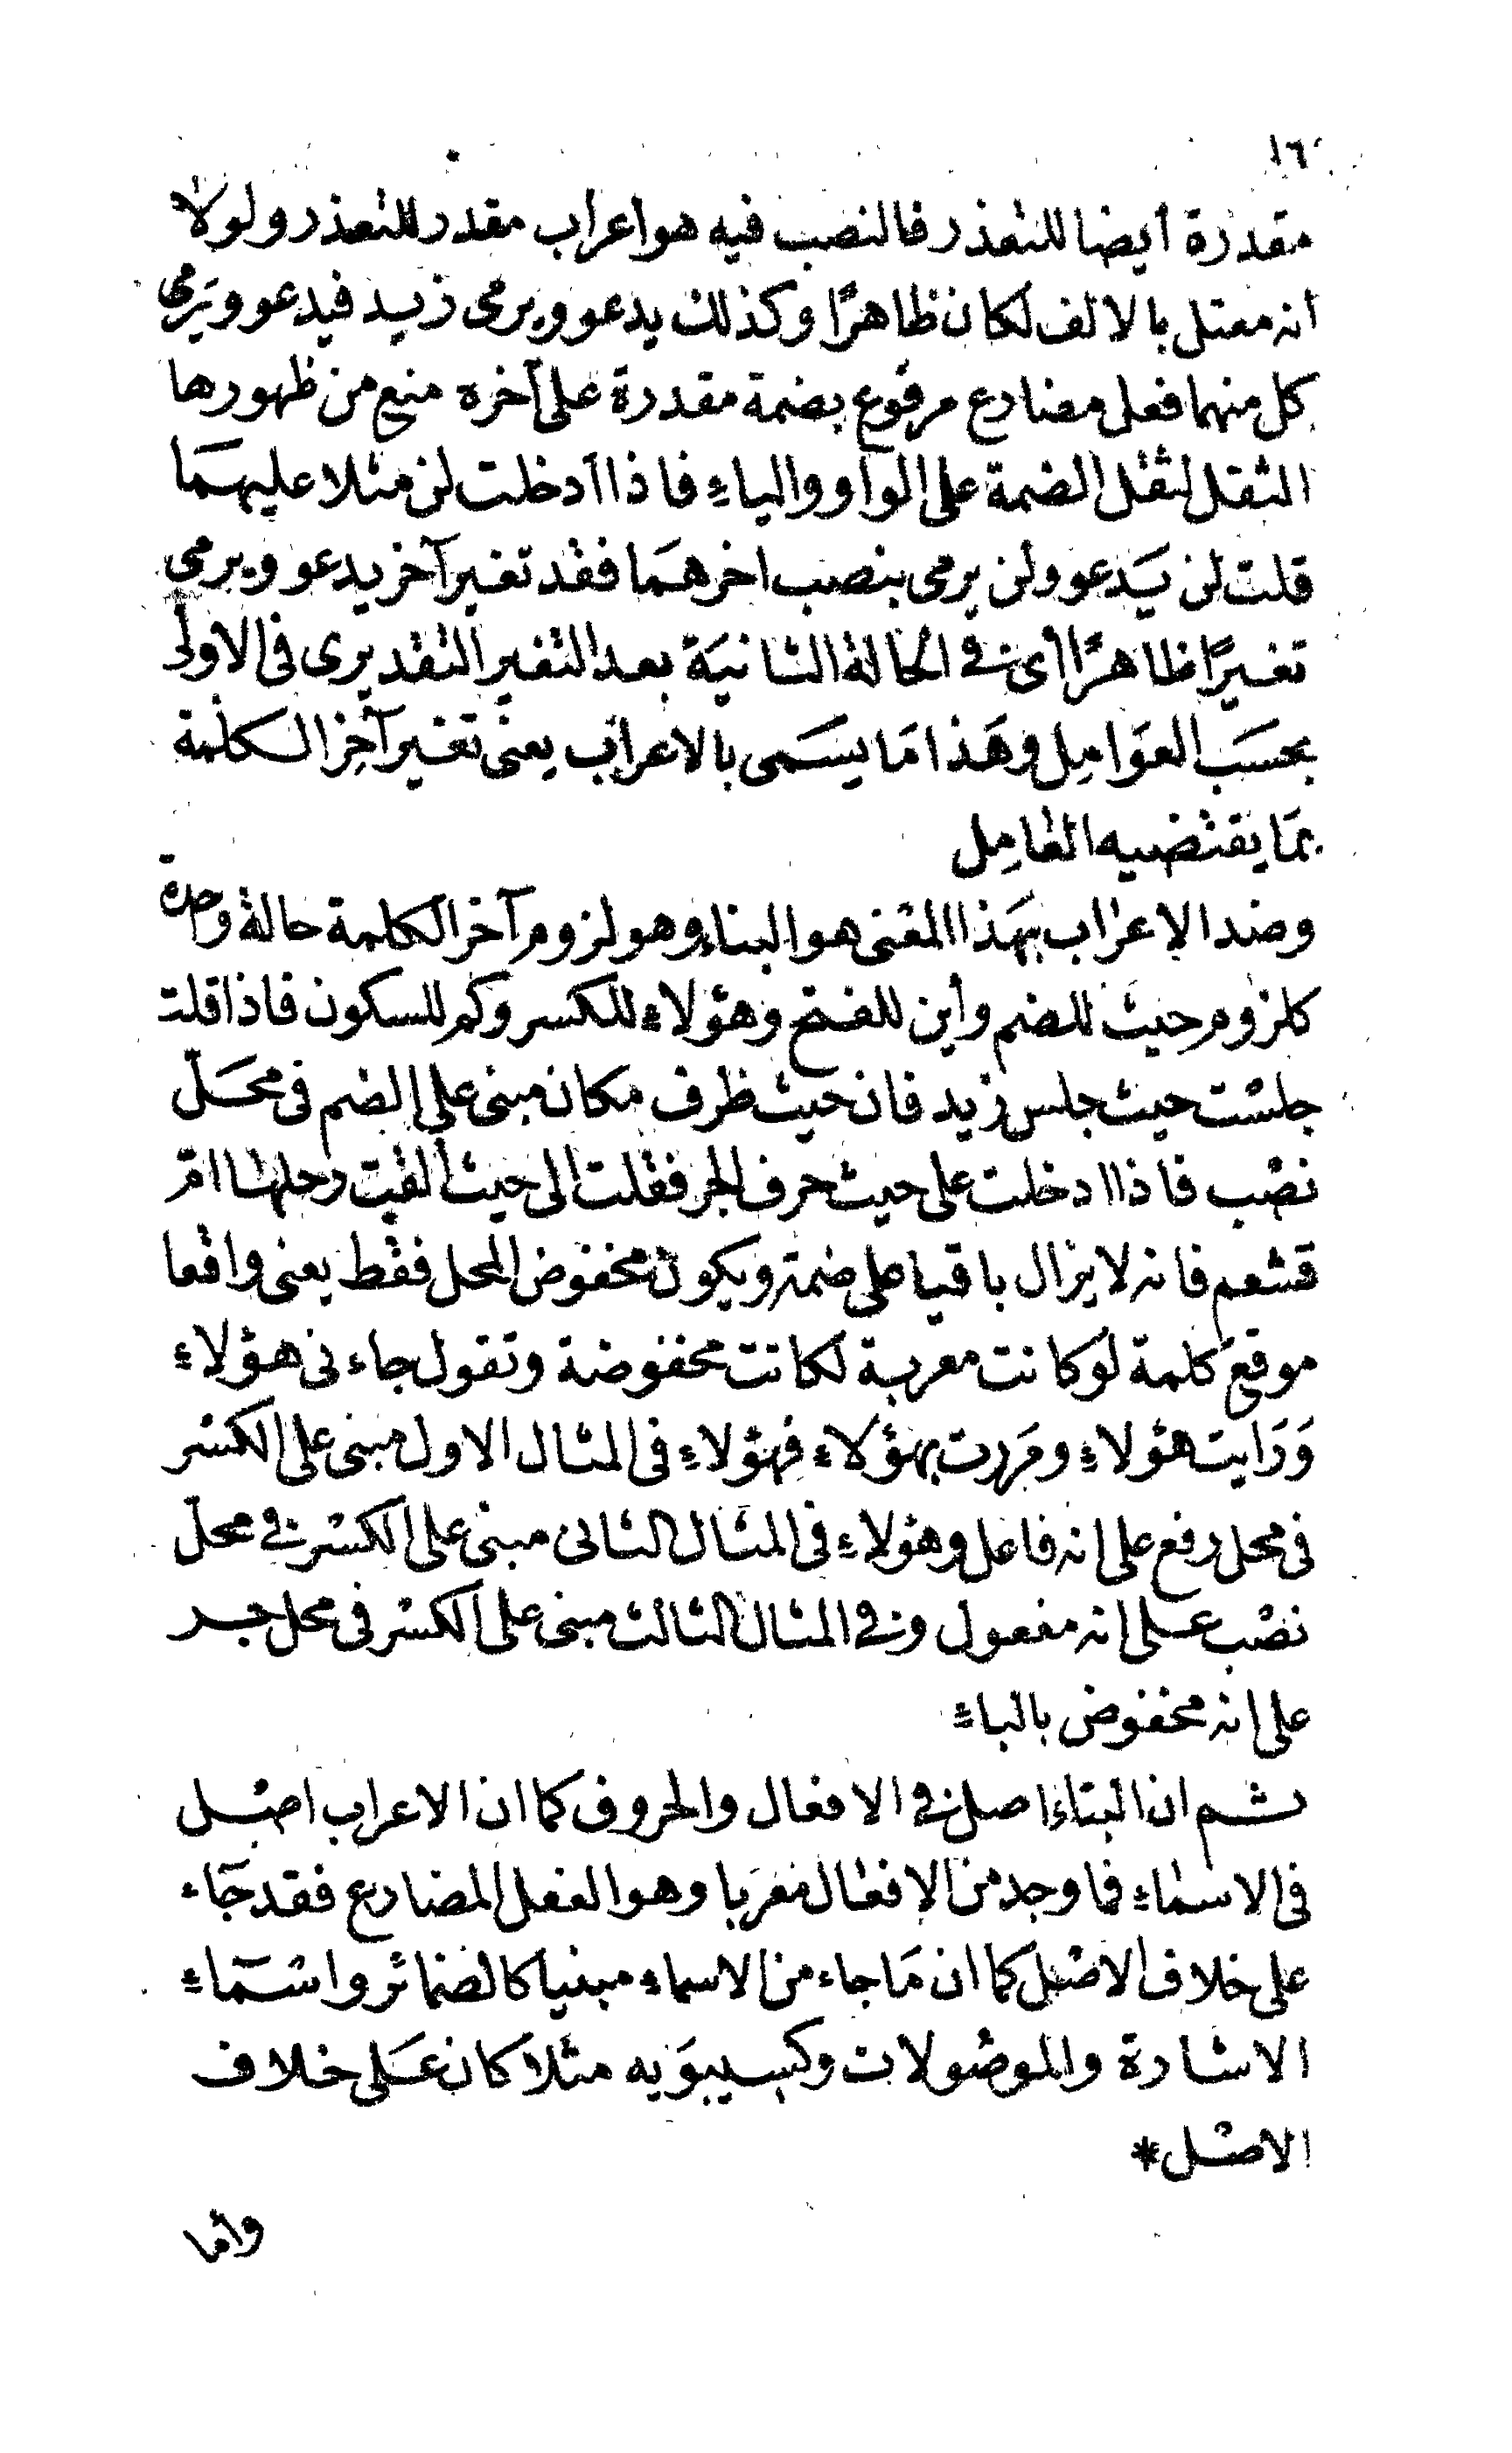 ١٦
مقدرة أيضا للتعذر فالنصب فيه هو اعراب مقدر للتعذر ولولا
انه معتل بالالف لكان ظاهرًا وكذلك يدعو ويرمى زيد فيدعو ويَرمى
كل منهما فعل مضارع مرفوع بضمة مقدرة على آخره منع من ظهورها
الثقل لثقل الضمة على الواو والياءِ فاذا أدخلت لن مثلا عليهمَا
قلت لن يَدعو ولن يرمى بنصب اخرهمَا فقد تغير آخر يدعو ويرمى
تغيرًا ظاهرًا أى فى الحالة الثانيَة بعد التغير التقديرى فى الاولى
بحسَب العوَامِل وهَذا مَا يسَمى بالاعراب يعنى تغير آخِر الكلمة
بمَا يقتضيه العامِل
وضد الاعراب بهَذا المعْنى هو البناءِ وهو لزوم آخر الكلمة حالة وحدة
كلزوم حيث للضم وأين للفتح وهؤلاءِ للكسر وكم للسكون فاذا قلت
جلسْت حيث جلس زيد فان حيث ظرف مكان مبنى على الضم فى محَلّ
نصْب فاذا ادخلت على حيث حرف الجر فقلت الى حيث ألقت رحلها امّ
قشعم فانه لا يزال باقيا على ضمته ويكون مخفوض المحل فقط يعنى واقعا
موقع كلمة لو كانت معربة لكانت مخفوضة وتقول جاءنى هؤلاءِ
وَرَايت هؤلاءِ ومَررت بهؤلاءِ فهؤلاءِ فى المثال الاول مبنى على الكسْر
فى محل رفع على انه فاعل وهؤلاءِ فى المثال الثانى مبنى على الكسْر فى محلّ
نصْب على انه مفعول وفى المثال الثالث مبنى على الكسْر فى محل جر
على انه مخفوض بالباءِ
ثم ان البناءَ اصل فى الافعال والحروف كما ان الاعراب اصْل
فى الاسماءِ فما وجد من الافعال معرَبا وهو الفعل المضارع فقد جَاء
على خلاف الاصْل كما ان مَا جاء من الاسماءِ مبنيا كالضمائر واسْمَاءِ
الاشارة والموصُولات وكسيبوَيه مثلا كان عَلى خلاف
الاصْل*
واما